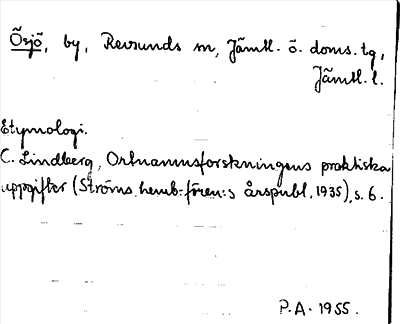 Ösjö, by, Revsunds sn, Jämtl. ö. doms. tg,
Jämtl. l.
Etymologi.
C. Lindberg, Ortnamnsforskningens praktiska
uppgifter (Ströms hemb.-fören:s årspubl. 1935), s. 6.
P.A. 1955.